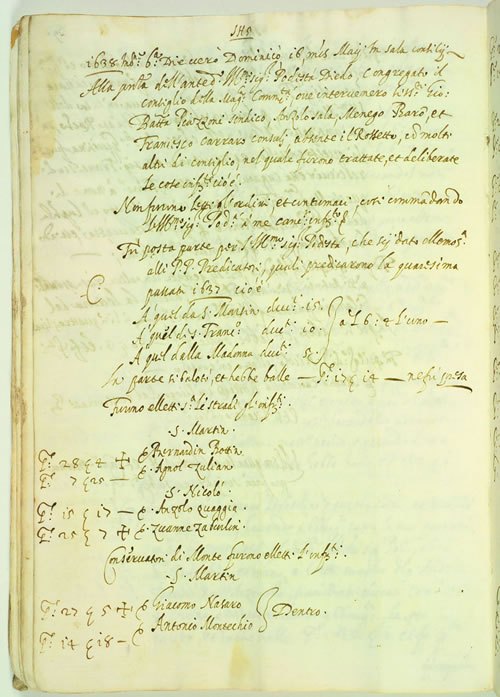 IHS
1638. Ind.e 6.a Die vero Dominico 16, mẽs Maij In sala consilij
Alla pñtia dell'anted.o Ill.mo sig.r Podestà Diedo, Congregato il
Consiglio della Mag.ca Comm.tà, oue interuenero li sig.ri Gio:
Batta Piazzoni sindico, Anzolo sala, Menego Baro, et
Francesco Carraro consuli, absente il Rossetto, ed molti
altri di consiglio, nel quale furono trattate, et deliberate
le cose infr.te cioè.
Non furono Letti gl'ordini et continuati, così commandando
l'Ill.mo sig.r Pod.à à me canc.re infr.to
Fù posta parte per l'Ill.mo sig.r Podestà, che sij dato ellemos.a
alli P.P. Predicatori, quali predicarono la quaresima
passata 1637 cioè
C.
A quel da S. Martin duc.ti 15.
A quel di S. Franc.o duc.ti 10. a L 6: 4 l'uno —
A quel dalla Madonna duc.ti 5.
La parte si balotò, et hebbe balle — P. 17 C 14 — ne fu presa
Furono eletti s.ri le strade gl'infr.ti.
.S. Martin.
P. 28 C 4 + Bernardin Bottin
P. 7 C 25 — Agnol Zulian
.S. Nicolò.
P. 15 C 17 — Anzolo Quaggia
P. 25 C 7 + Zuanne Zabeilin.
Conseruatori di Monte furono eletti l'infr.ti.
.S. Martin
P. 27 C 5 + Giacomo Nasaro
Dentro.
P. 14 C 18 — Antonio Montechio